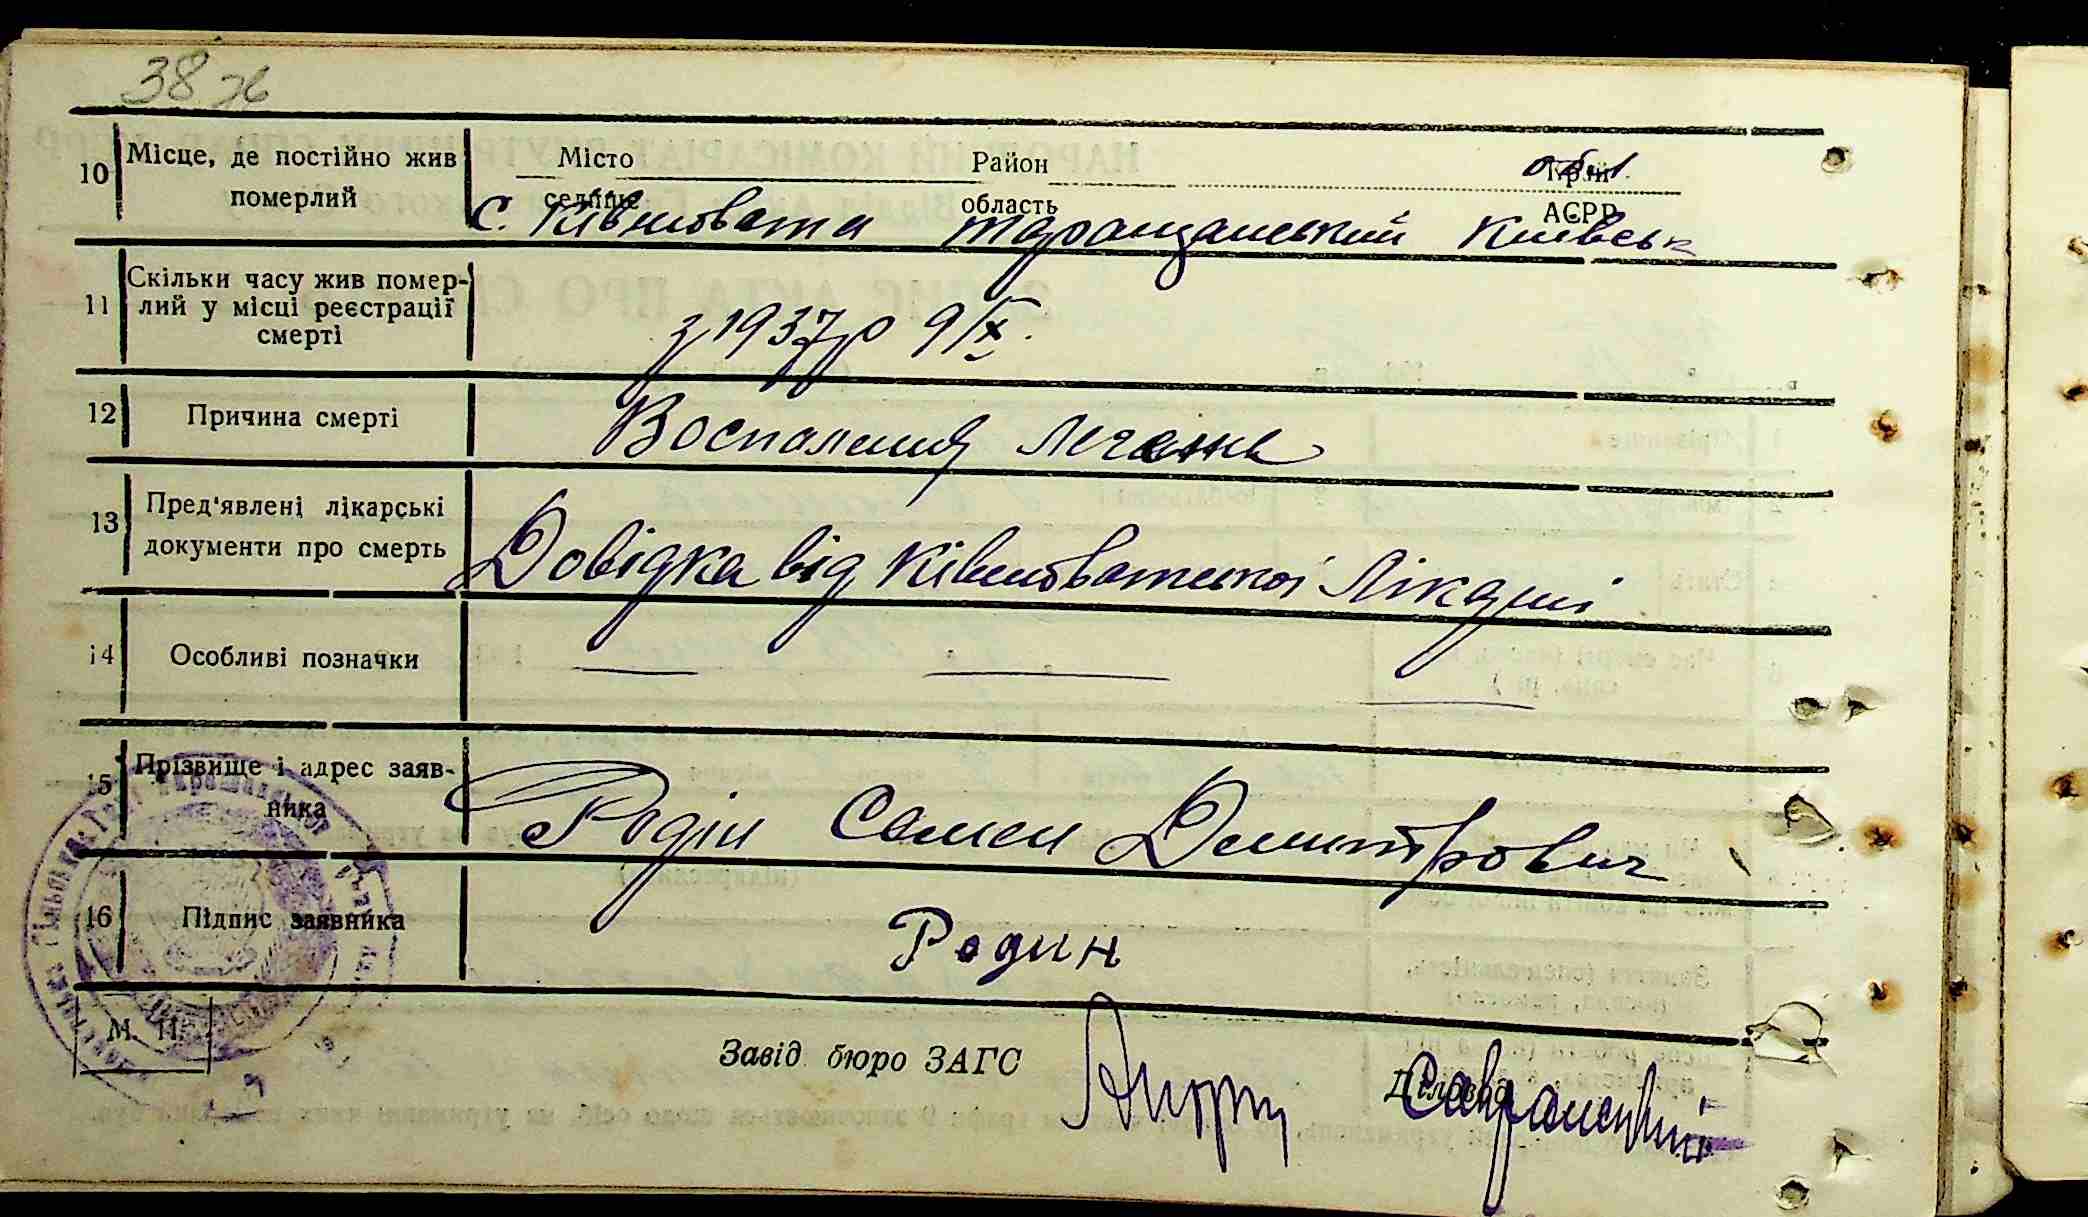 38 зв
10 Місце, де постійно жив померлий
Місто Район Край
селище область АСРР
обл.
с. Ківшовата Таращанський Київськ
11 Скільки часу жив помер-
лий у місці реєстрації
смерті
з 1937 р 9/X.
12 Причина смерті
Воспаления легень
13 Пред'явлені лікарські
документи про смерть
Довідка від Ківшоватської Лікарні
14 Особливі позначки
15 Прізвище і адрес заяв-
ника
Родін Семен Дмитрович
16 Підпис заявника
Родин
М. П.
Завід бюро ЗАГС
Діловод